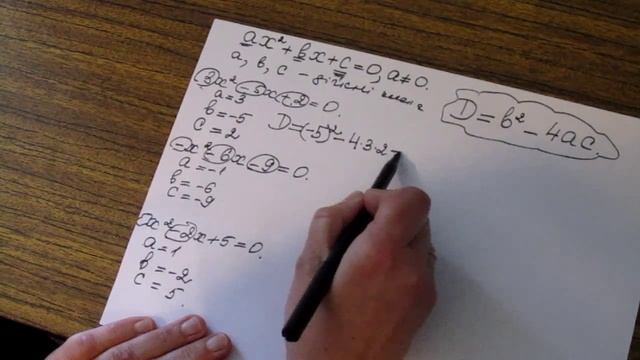 ax² + bx + c = 0, a ≠ 0.
a, b, c – дійсні числа
D = b² – 4ac.
3x² – 5x + 2 = 0.
a = 3
b = –5
c = 2
D = (–5)² – 4·3·2 =
–x² – 6x – 9 = 0.
a = –1
b = –6
c = –9
x² – 2x + 5 = 0.
a = 1
b = –2
c = 5.